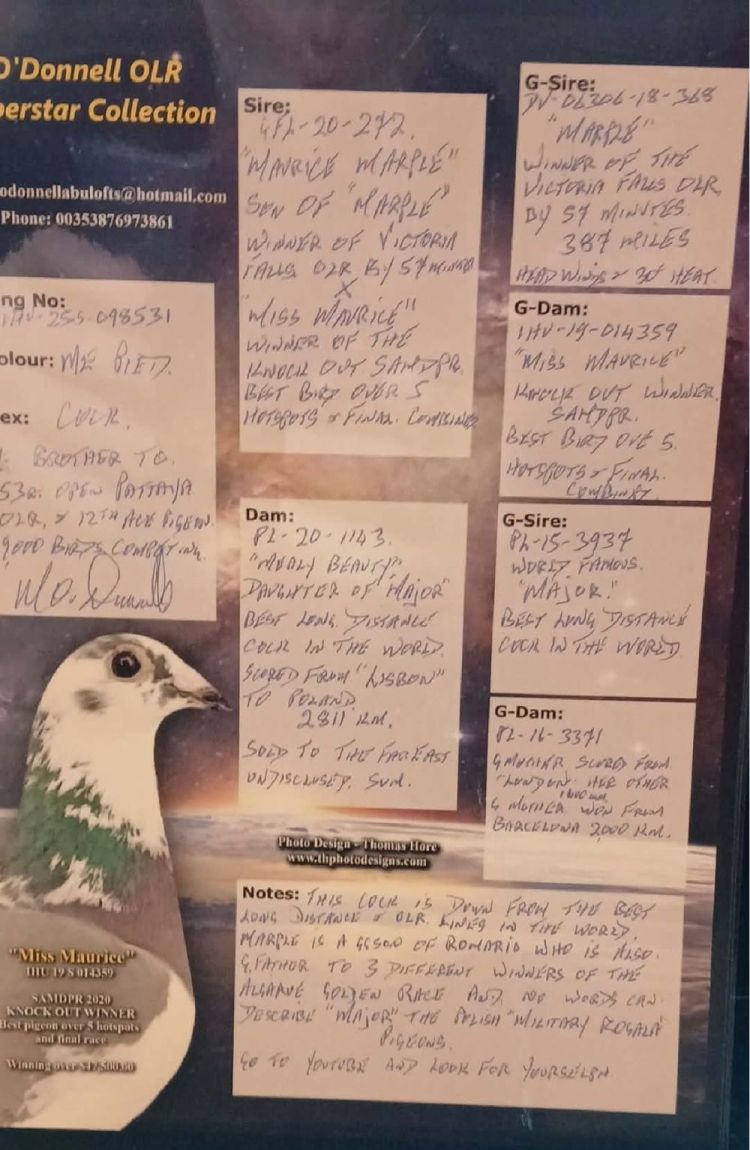 O'Donnell OLR
perstar Collection
odonnellabulofts@hotmail.com
Phone: 00353876973861
ng No:
IHU-25S-098531
olour: ME PIED.
ex: COCK.
BROTHER TO.
53RD. OPEN PATTAYA
OLR, & 12TH ACE PIGEON.
9,000 BIRDS COMPETING.
M O. Donnell
Sire:
GFL-20-272.
"MAURICE MARPLE"
SON OF "MARPLE"
WINNER OF VICTORIA
FALLS OLR BY 57 MINUTES
X
"MISS MAURICE"
WINNER OF THE
KNOCK OUT SAMDPR.
BEST BIRD OVER 5
HOTSPOTS & FINAL. COMBINED
Dam:
PL-20-1143.
"MEALY BEAUTY"
DAUGHTER OF "MAJOR"
BEST LONG DISTANCE
COCK IN THE WORLD.
SCORED FROM "LISBON"
TO POLAND.
2811 KM.
SOLD TO THE FAREAST
UNDISCLOSED. SUM.
G-Sire:
DV-06306-18-368
"MARPLE"
WINNER OF THE
VICTORIA FALLS OLR
BY 57 MINUTES.
387 MILES
HEADWINDS & 30° HEAT.
G-Dam:
IHU-19-014359
"MISS MAURICE"
KNOCK OUT WINNER.
SAMDPR.
BEST BIRD OVE 5.
HOTSPOTS & FINAL.
COMBINED.
G-Sire:
PL-15-3937
WORLD FAMOUS.
"MAJOR."
BEST LONG DISTANCE
COCK IN THE WORLD
G-Dam:
PL-16-3371
G MOTHER SCORED FROM
"LONDON. HER OTHER
G MOTHER. WON FROM
BARCELONA 2,000 KM.
Photo Design - Thomas Hore
www.thphotodesigns.com
Notes: THIS COCK IS DOWN FROM THE BEST
LONG DISTANCE & OLR. LINES IN THE WORLD.
MARPLE IS A GGSON OF ROMARIO WHO IS ALSO.
G.FATHER TO 3 DIFFERENT WINNERS OF THE
ALGARVE GOLDEN RACE AND. NO WORDS CAN
DESCRIBE "MAJOR" THE POLISH "MILITARY ROSALA
PIGEONS.
GO TO YOUTUBE AND LOOK FOR YOURSELF.
"Miss Maurice"
IHU 19 S 014359
SAMDPR 2020
KNOCK OUT WINNER
Best pigeon over 5 hotspots
and final race
Winning over $47,500.00